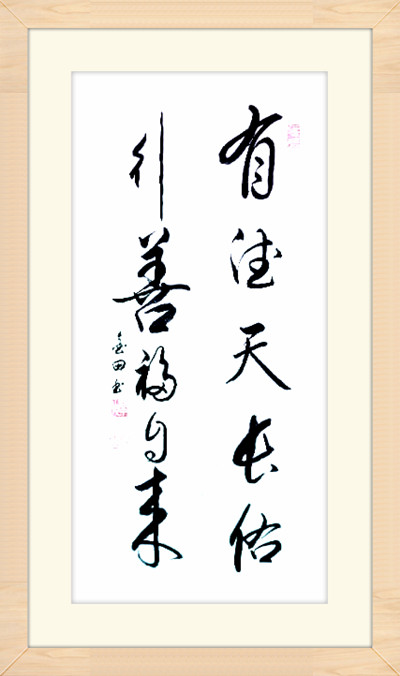 有德天长佑
行善福自来
金田书